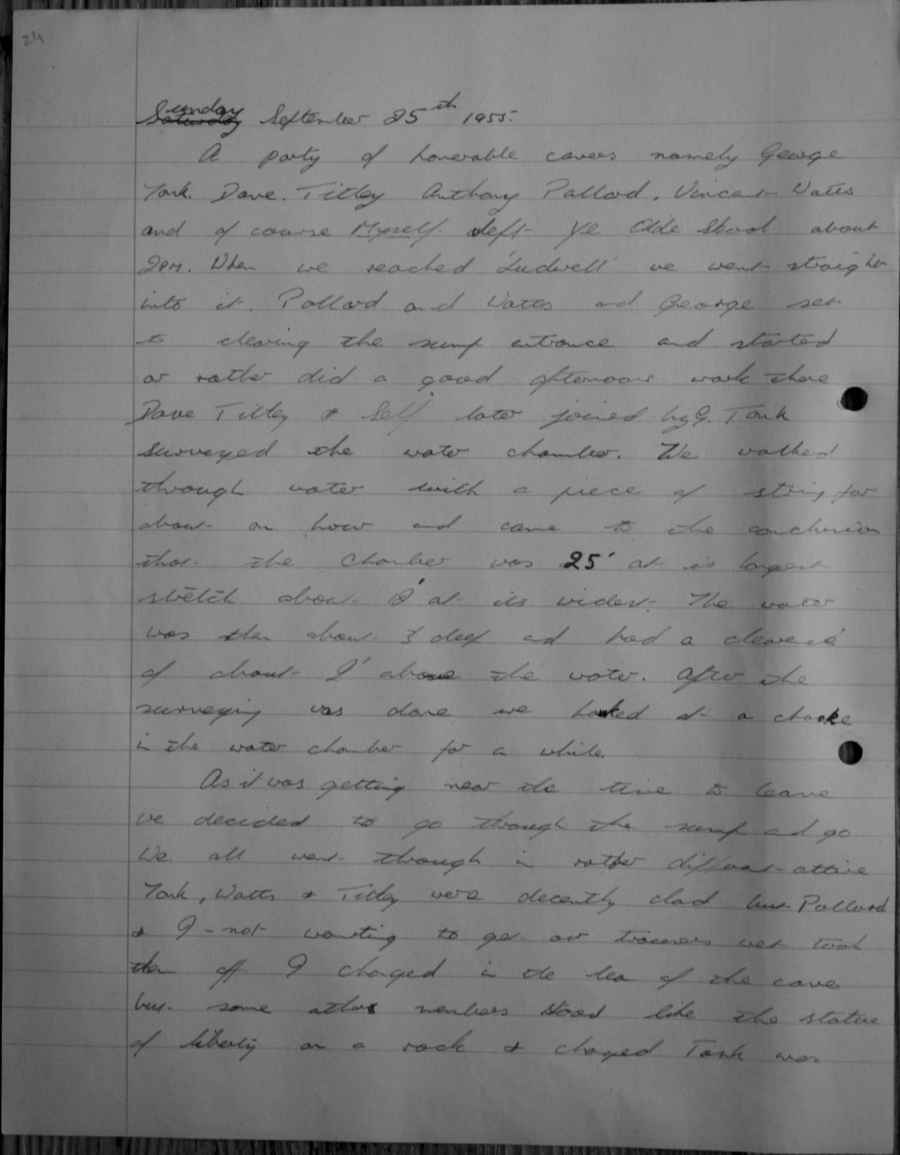 24
Sunday September 25th 1955.
A party of honerable cavers namely George
Tork. Dave. Titley Anthony Pallard. Vincent Watts
and of course Myself. left Ye Olde Skool about
2PM. When we reached 'Ludwell' we went straight
into it. Pollard and Watts and George set
to clearing the sump entrance and started
or rather did a good afternoons work there
Dave Titley & Self later joined by G. Tork
surveyed the water chamber. We walked
through water with a piece of string for
about an hour and came to the conclusion
that the chamber was 25' at is largest
stretch about at its widest. The water
was then about 3 deep and had a clearence
of about 2' above the water. After the
surveying was done we hacked at a choke
in the water chamber for a while.
As it was getting near the time to leave
we decided to go through the sump and go
We all went through in rather different attire
Tork, Watts & Titley were decently clad but Pollard
& I - not wanting to get our trousers wet took
them off I changed in the lea of the cave
but some other members stood like the statue
of liberty on a rock & changed Tork was